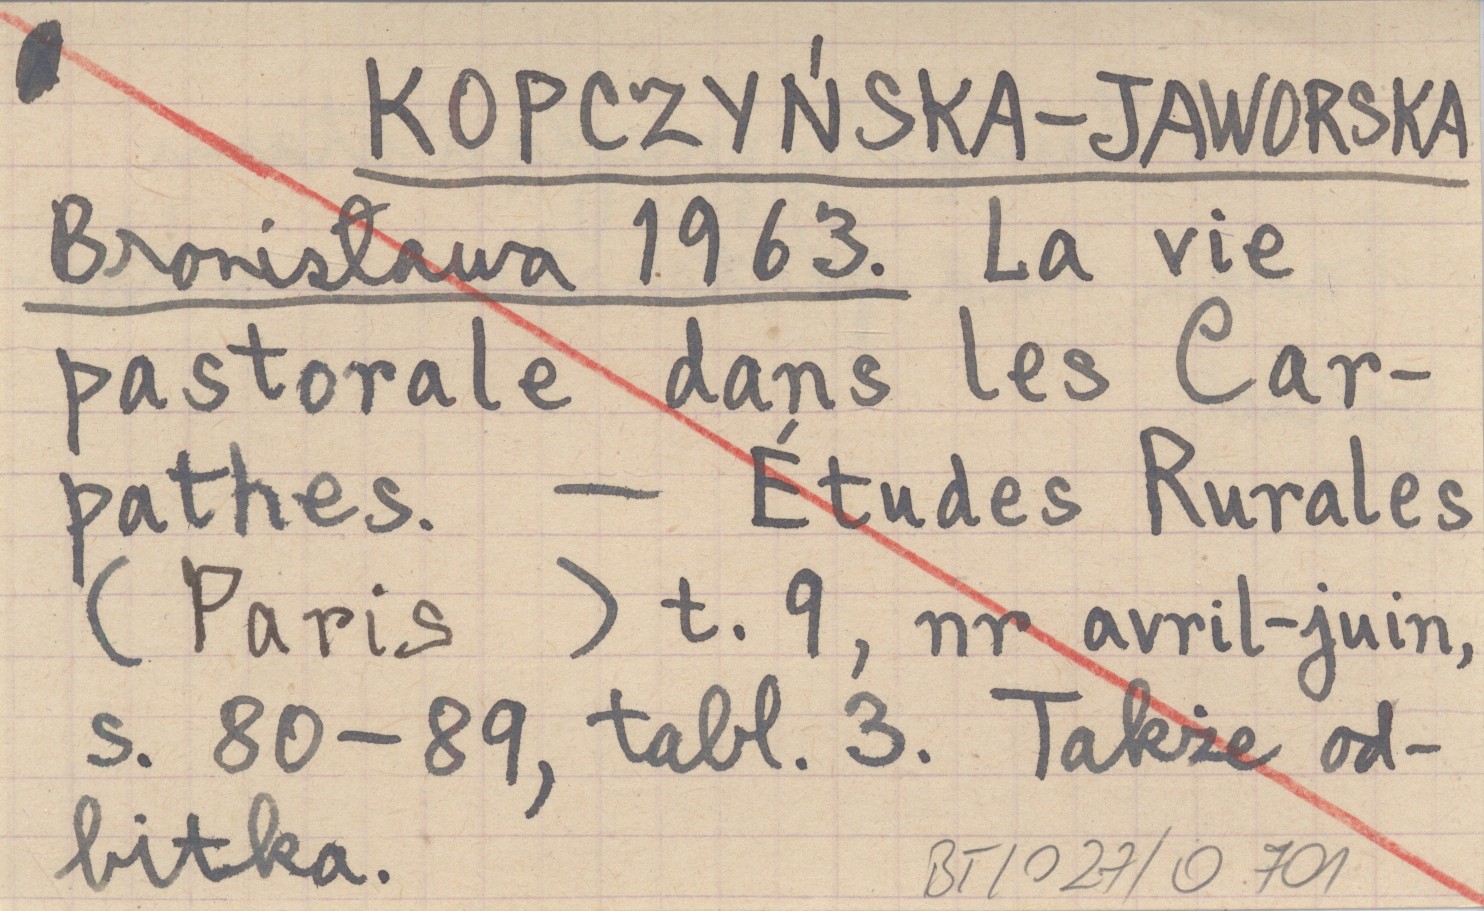 KOPCZYŃSKA-JAWORSKA
Bronisława 1963. La vie
pastorale dans les Car-
pathes. — Études Rurales
(Paris) t. 9, nr avril-juin,
s. 80-89, tabl. 3. Także od-
bitka.
BT/027/0 701